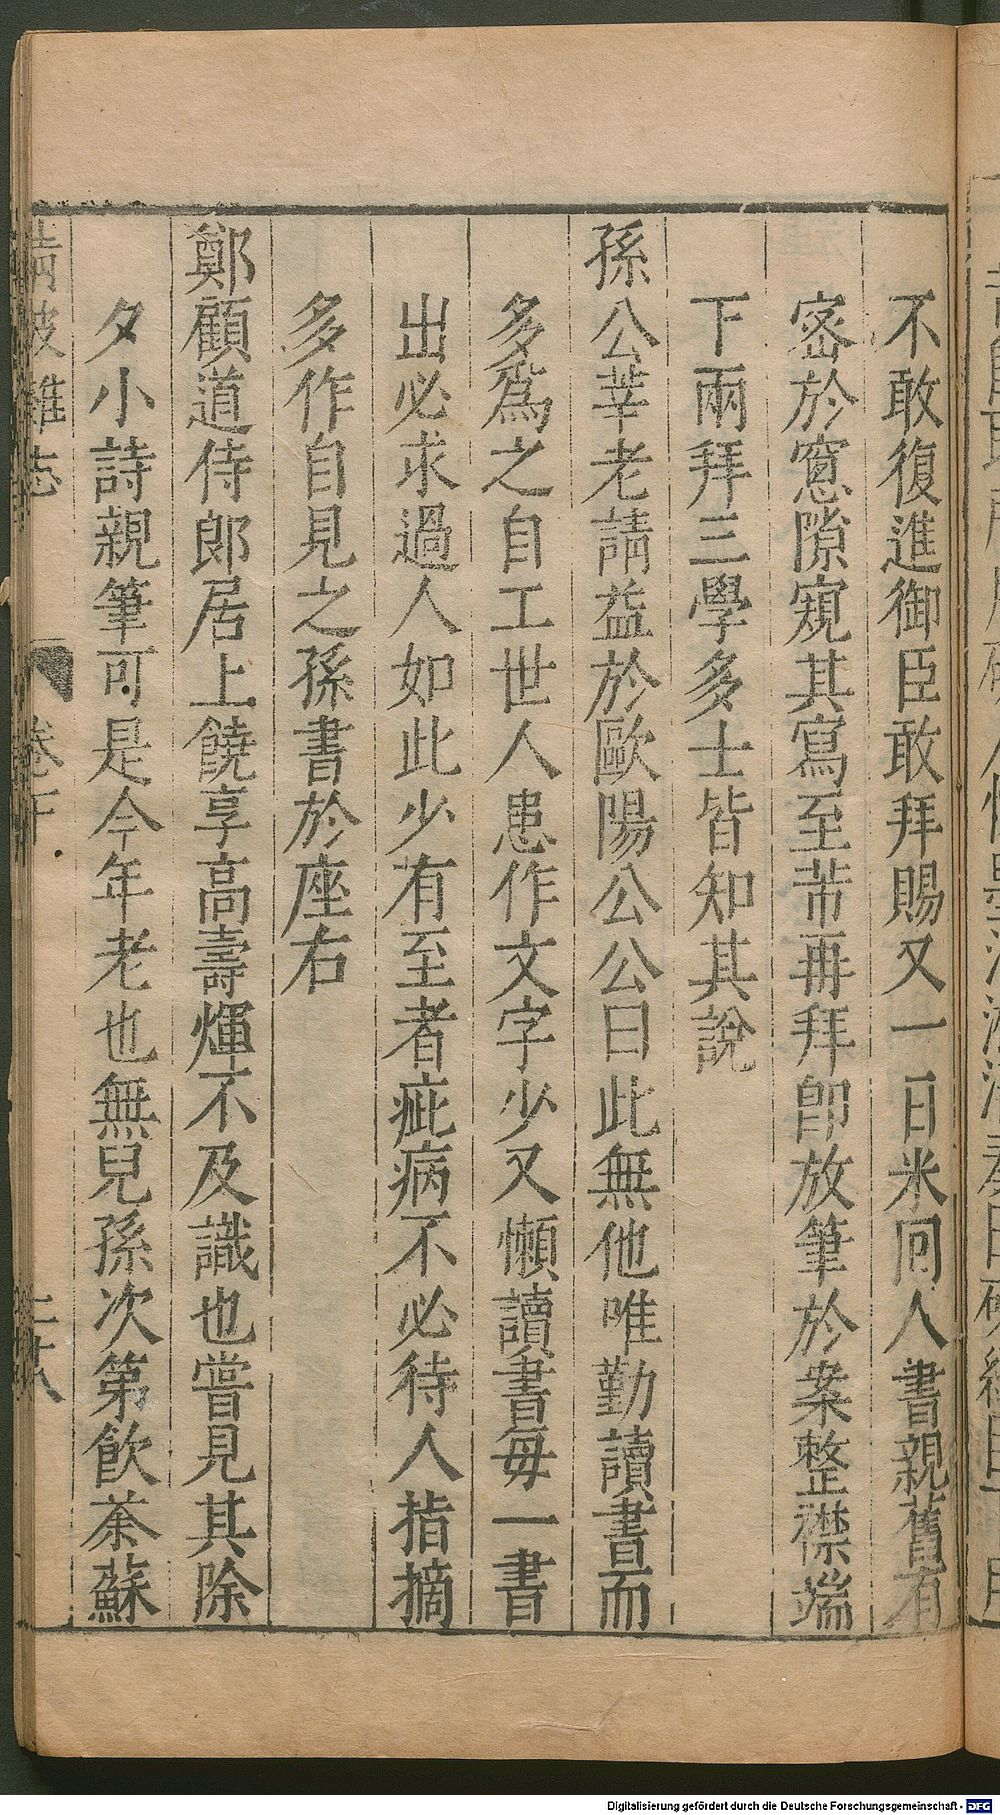 不敢復進御臣敢拜賜又一日米囘人書親舊有
密於窻隙窺其寫至芾再拜卽放筆於案整襟端
下兩拜三學多士皆知其說
孫公莘老請益於歐陽公公曰此無他唯勤讀書而
多爲之自工世人患作文字少又懶讀書每一書
出必求過人如此少有至者疵病不必待人指摘
多作自見之孫書於座右
鄭顧道侍郎居上饒享高壽煇不及識也嘗見其除
夕小詩親筆可是今年老也無兒孫次第飲荼蘇
清波雜志 卷下 二十八
Digitalisierung gefördert durch die Deutsche Forschungsgemeinschaft - DFG